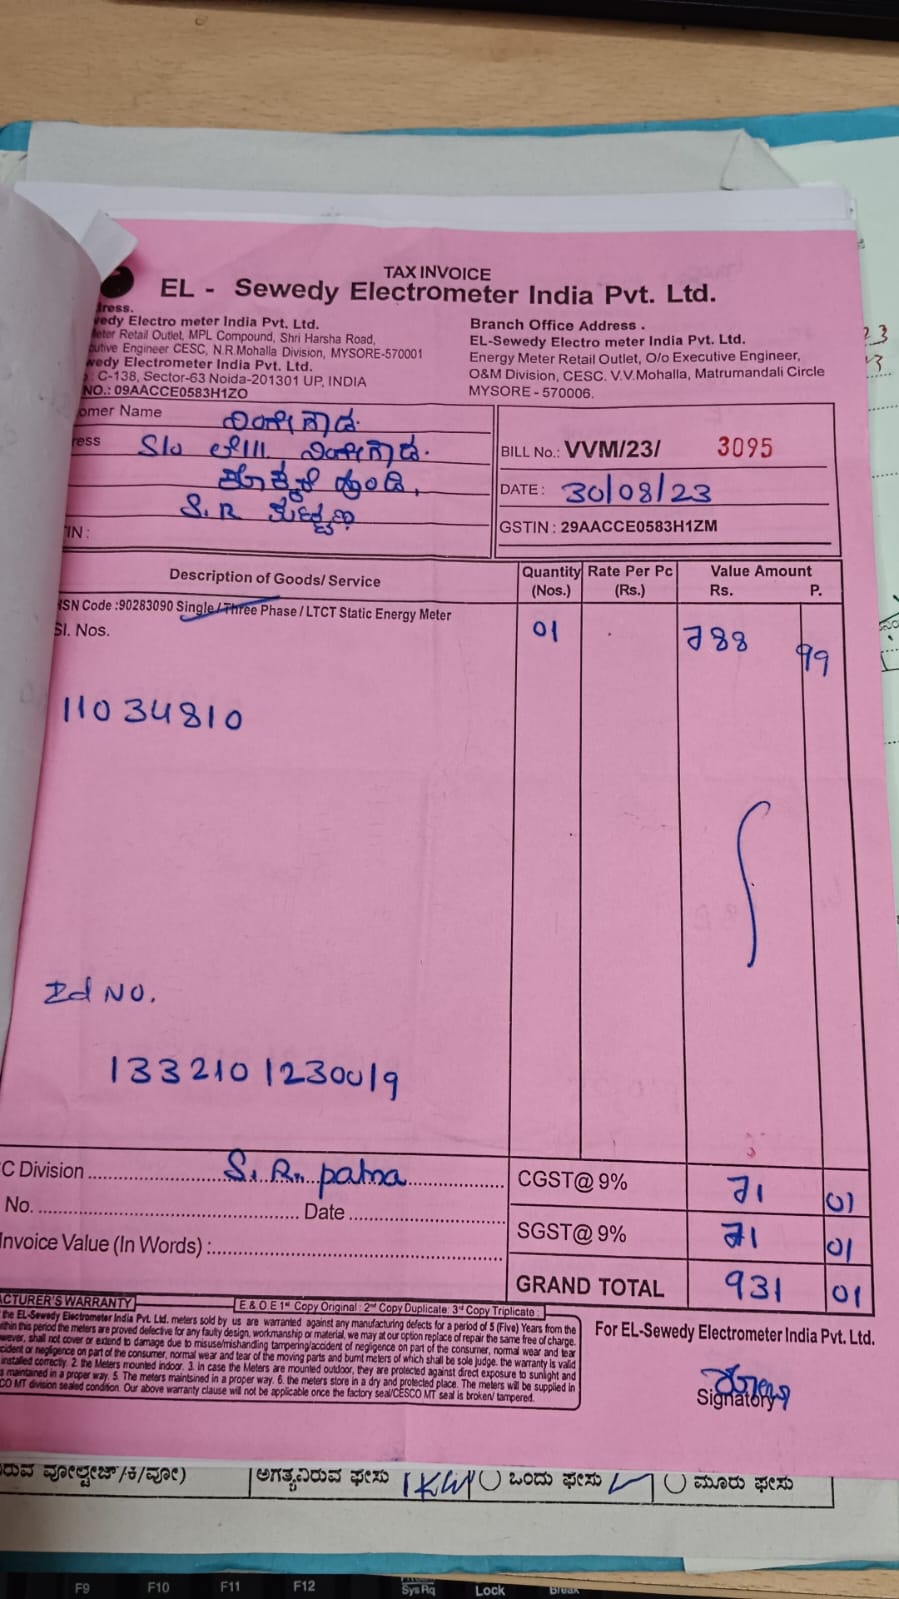 TAX INVOICE
EL - Sewedy Electrometer India Pvt. Ltd.
dress.
wedy Electro meter India Pvt. Ltd.
Meter Retail Outlet, MPL Compound, Shri Harsha Road,
cutive Engineer CESC, N.R.Mohalla Division, MYSORE-570001
wedy Electrometer India Pvt. Ltd.
: C-138, Sector-63 Noida-201301 UP, INDIA
NO.: 09AACCE0583H1ZO
Branch Office Address .
EL-Sewedy Electro meter India Pvt. Ltd.
Energy Meter Retail Outlet, O/o Executive Engineer,
O&M Division, CESC. V.V.Mohalla, Matrumandali Circle
MYSORE - 570006.
omer Name
ress S/o
S.R
TIN :
BILL No.: VVM/23/ 3095
DATE : 30/08/23
GSTIN : 29AACCE0583H1ZM
Description of Goods/ Service
Quantity (Nos.)
Rate Per Pc (Rs.)
Value Amount
Rs. P.
HSN Code :90283090 Single / Three Phase / LTCT Static Energy Meter
Sl. Nos.
01 788 99
11034810
Id NO.
1332101230019
C Division S. R. patna
No. Date
Invoice Value (In Words) :
CGST@ 9% 71 01
SGST@ 9% 71 01
GRAND TOTAL 931 01
ACTURER'S WARRANTY
E & O E 1st Copy Original : 2nd Copy Duplicate: 3rd Copy Triplicate :
the EL-Sewedy Electrometer India Pvt. Ltd. meters sold by us are warranted against any manufacturing defects for a period of 5 (Five) Years from the
within this period the meters are proved defective for any faulty design, workmanship or material, we may at our option replace of repair the same free of charge.
however, shall not cover or extend to damage due to misuse/mishandling tampering/accident of negligence on part of the consumer, normal wear and tear
cident or negligence on part of the consumer, normal wear and tear of the moving parts and burnt meters of which shall be sole judge. the warranty is valid
installed correctly. 2. the Meters mounted indoor. 3. In case the Meters are mounted outdoor, they are protected against direct exposure to sunlight and
maintained in a proper way. 5. The meters maintsined in a proper way. 6. the meters store in a dry and protected place. The meters will be supplied in
CO MT division sealed condition. Our above warranty clause will not be applicable once the factory seal/CESCO MT seal is broken/ tampered.
For EL-Sewedy Electrometer India Pvt. Ltd.
Signatory
ರುವ ವೋಲ್ಟೇಜ್/ಕಿ/ವೋ)
ಅಗತ್ಯವಿರುವ ಫೇಸು 1KW ಒಂದು ಫೇಸು ಮೂರು ಫೇಸು
F9 F10 F11 F12 Sys Rq Lock Break